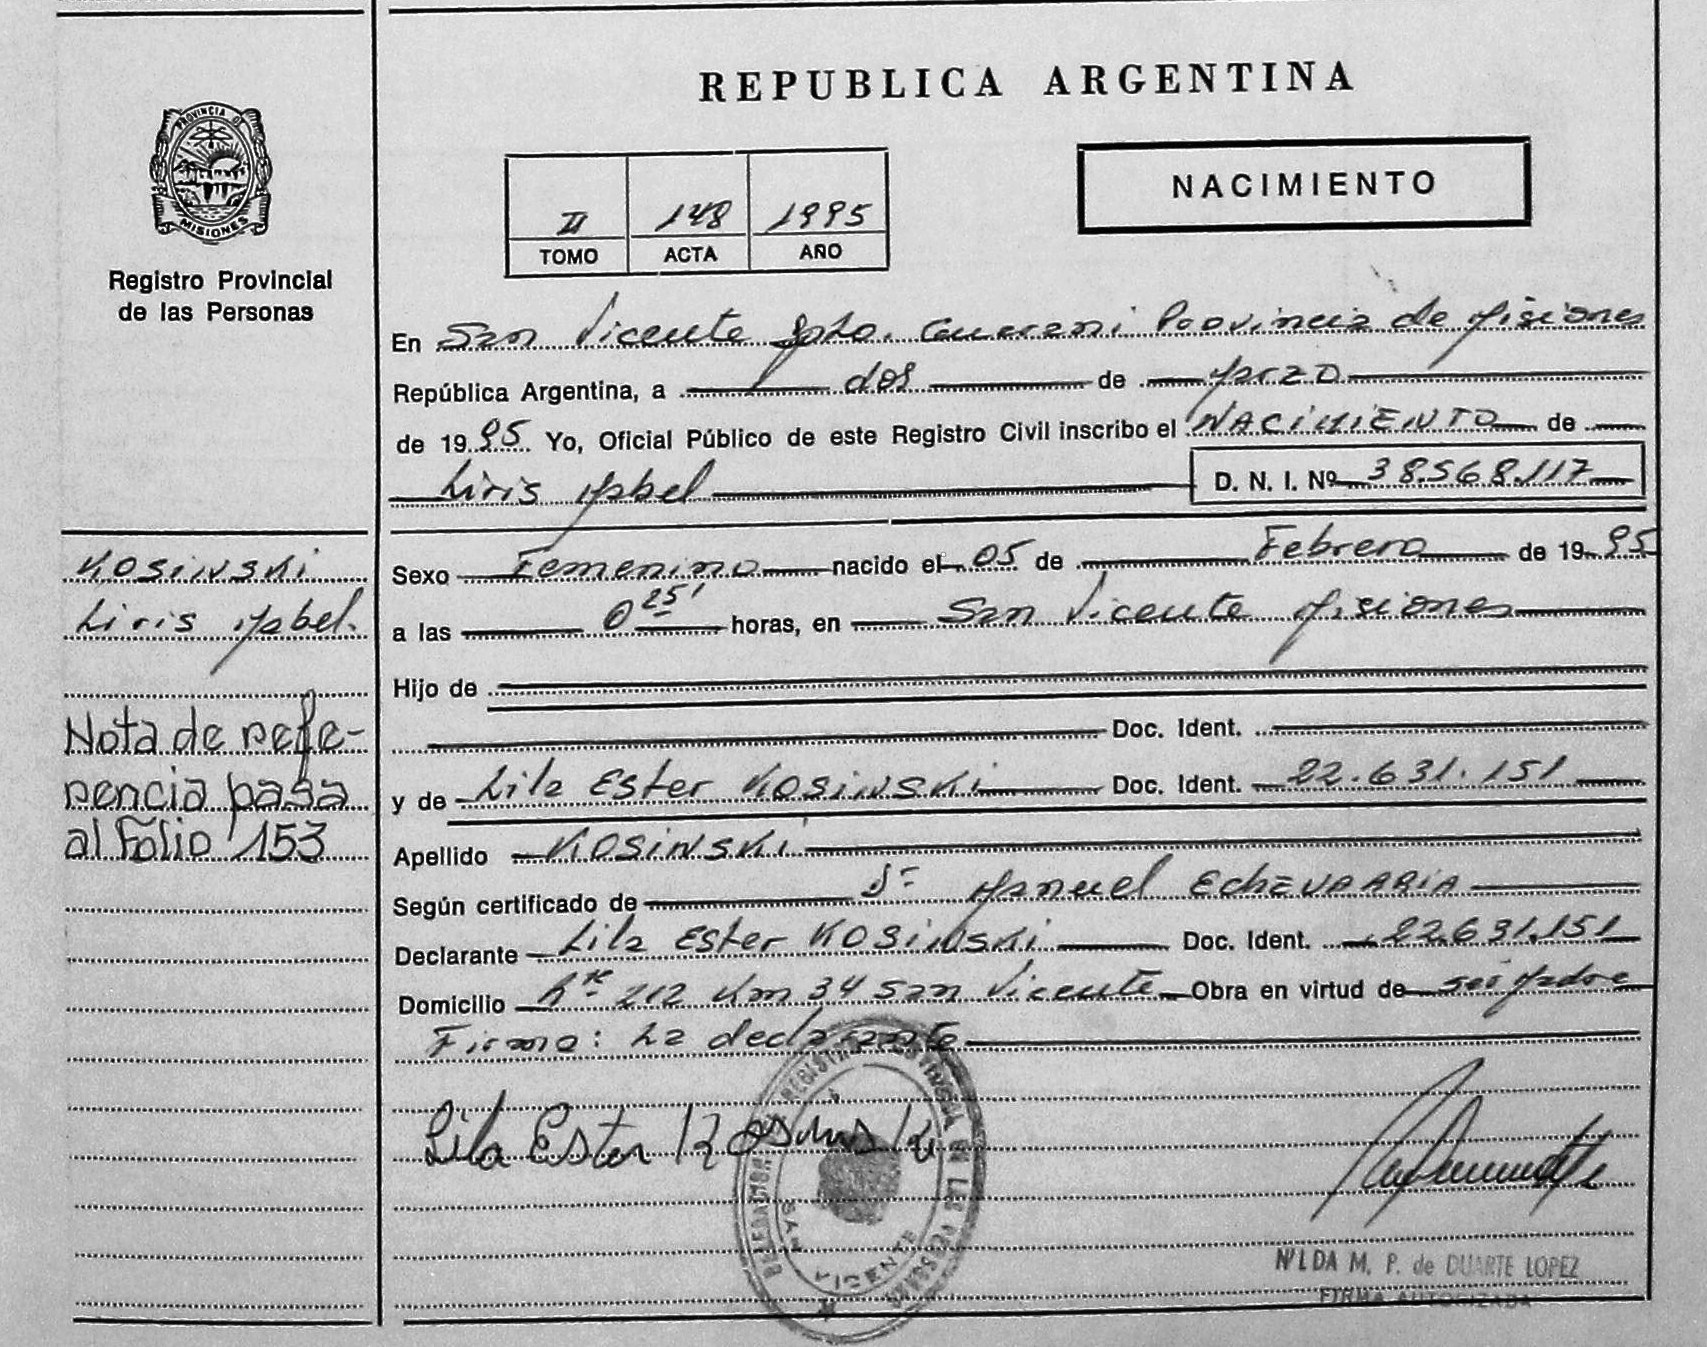 REPUBLICA ARGENTINA
PROVINCIA DE
MISIONES
Registro Provincial
de las Personas
II 148 1995
TOMO ACTA AÑO
NACIMIENTO
En San Vicente Dpto. Guarani Provincia de Misiones
República Argentina, a dos de Marzo
de 1995 Yo, Oficial Público de este Registro Civil inscribo el NACIMIENTO de
Liris Mabel D. N. I. Nº 38.568.117
KOSINSKI
Liris Mabel.
Sexo Femenino nacido el 05 de Febrero de 1995
a las 0 25' horas, en San Vicente Misiones
Hijo de
Doc. Ident.
Nota de refe-
rencia pasa
al Folio 153
y de Lila Ester KOSINSKI Doc. Ident. 22.631.151
Apellido KOSINSKI
Según certificado de Dr Manuel ECHEVARRIA
Declarante Lila Ester KOSINSKI Doc. Ident. 22.631.151
Domicilio 212 Km 34 San Vicente Obra en virtud de ser Madre
Firma: La declarante
Lila Ester Kosinski
SAN VICENTE
NILDA M. P. de DUARTE LOPEZ
FIRMA AUTORIZADA